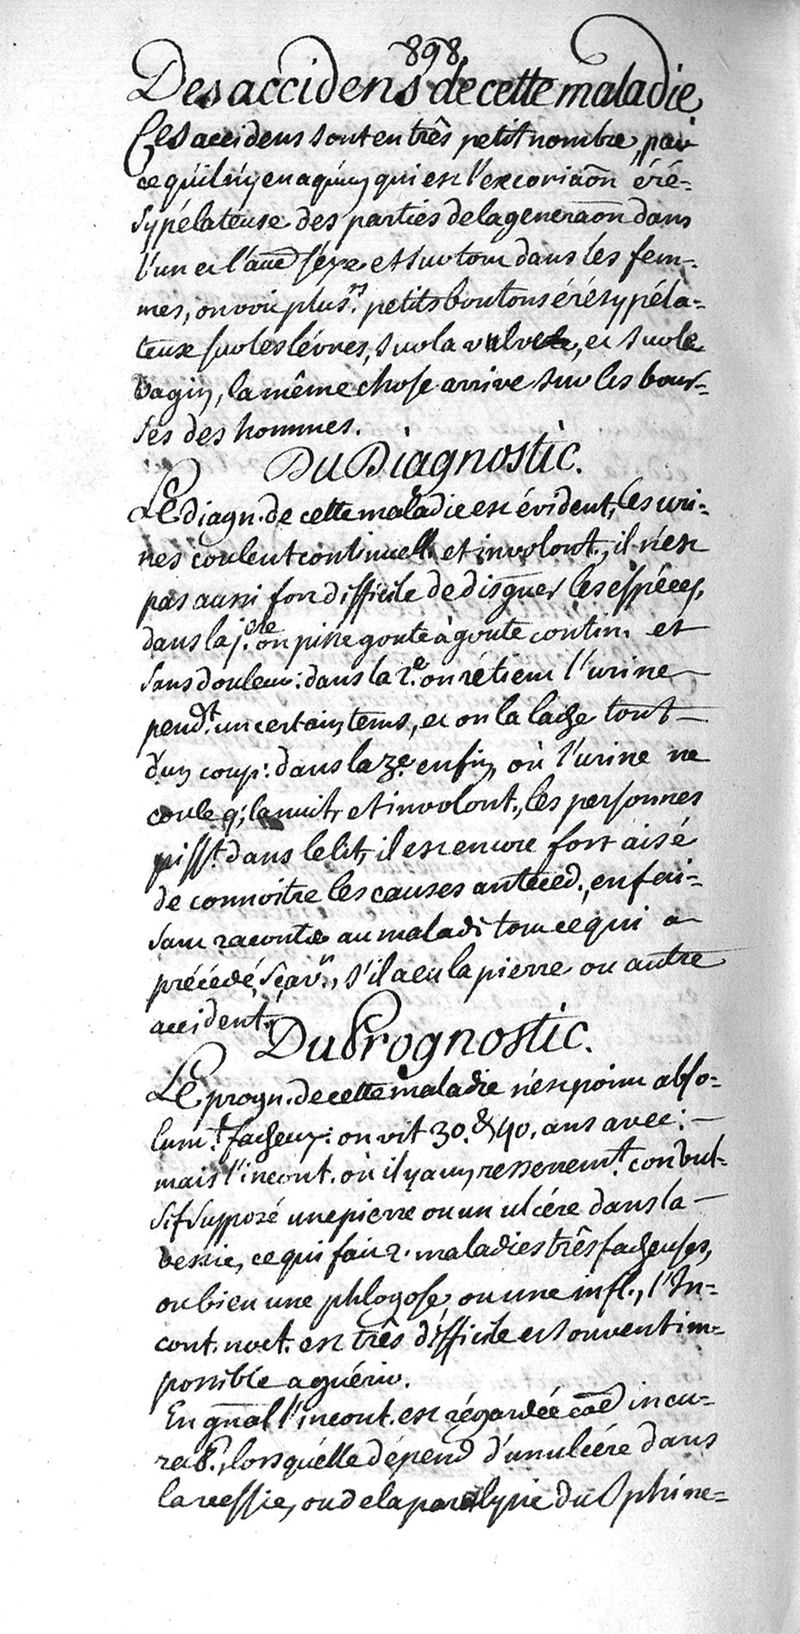 898
Des accidens de cette maladie
Ces accidens sont en três petit nombre, par
ce qu'il n'y en a qu'un, qui est l'excoriaõn éré-
sypélateuse des parties de la generaõn dans
l'un et l'autre séxe et surtout dans les fem-
mes, on voit plusrs. petits boutons érésypéla-
teux sur les lévres, sur la vulve, et sur le
vagin, la même chose arrive sur les bour-
ses des hommes.
Du Diagnostic.
Le diagn. de cette maladie est évident, les uri-
nes coulent continuell. et involont., il n'est
pas aussi fort difficile de disguer les espéces,
dans la 1ere. on pisse goute à goute contin. et
sans douleur: dans la 2e. on rétient l'urine
pendt. un certain tems, et on la lache tout
d'un coup: dans la 3e. enfin, où l'urine ne
coule q; la nuit, et involont., les personnes
pisst. dans le lit, il est encore fort aisé
de connoitre les causes antéced., en fai-
sant raconter au malade tout ce qui a
précédé, sçavr., s'il a eu la pierre ou autre
accident.
Du Prognostic.
Le progn. de cette maladie n'est point abso-
lumt. facheux: on vit 30. & 40. ans avec:
mais l'incont. où il y a un resserremt. convul-
sif supposé une pierre ou un ulcére dans la
vessie, ce qui fait 2. maladies três facheuses,
ou bien une phlogose, ou une infl., l'In-
cont. noct. est três difficile et souvent im-
possible a guérir.
En gnãl l'incont. est régardée cõe incu-
rab., lorsqu'elle dépend d'un ulcére dans
la vessie, ou de la paralysie du Sphinc-